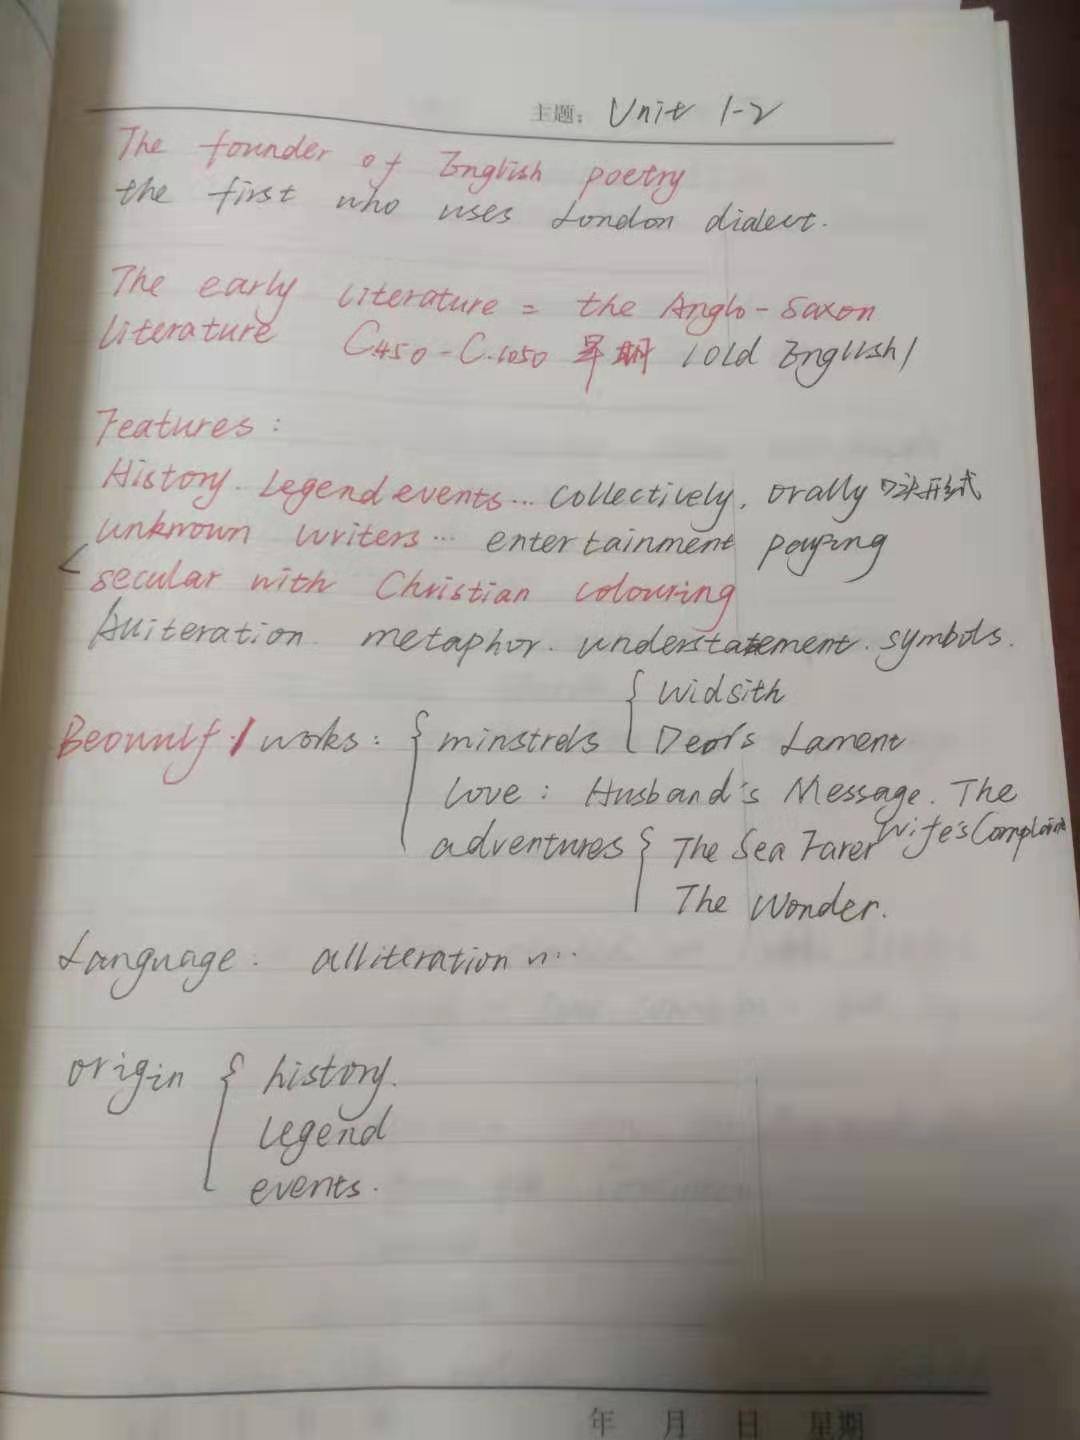 主题: Unit 1-2
The founder of English poetry
the first who uses London dialect.
The early literature = the Anglo-Saxon
literature C450-C.1050 早期 (Old English)
Features:
History. Legend events... collectively, orally 口头形式
unknown writers... entertainment
secular with Christian colouring
Alliteration. metaphor. understatement. symbols.
Widsith
Beowulf. / works: { minstrels { Deor's Lament
love: Husband's Message. The
Wife's Complaint
adventures { The Sea Farer
The Wonder.
Language: alliteration ...
origin { history.
legend
events.
年 月 日 星期